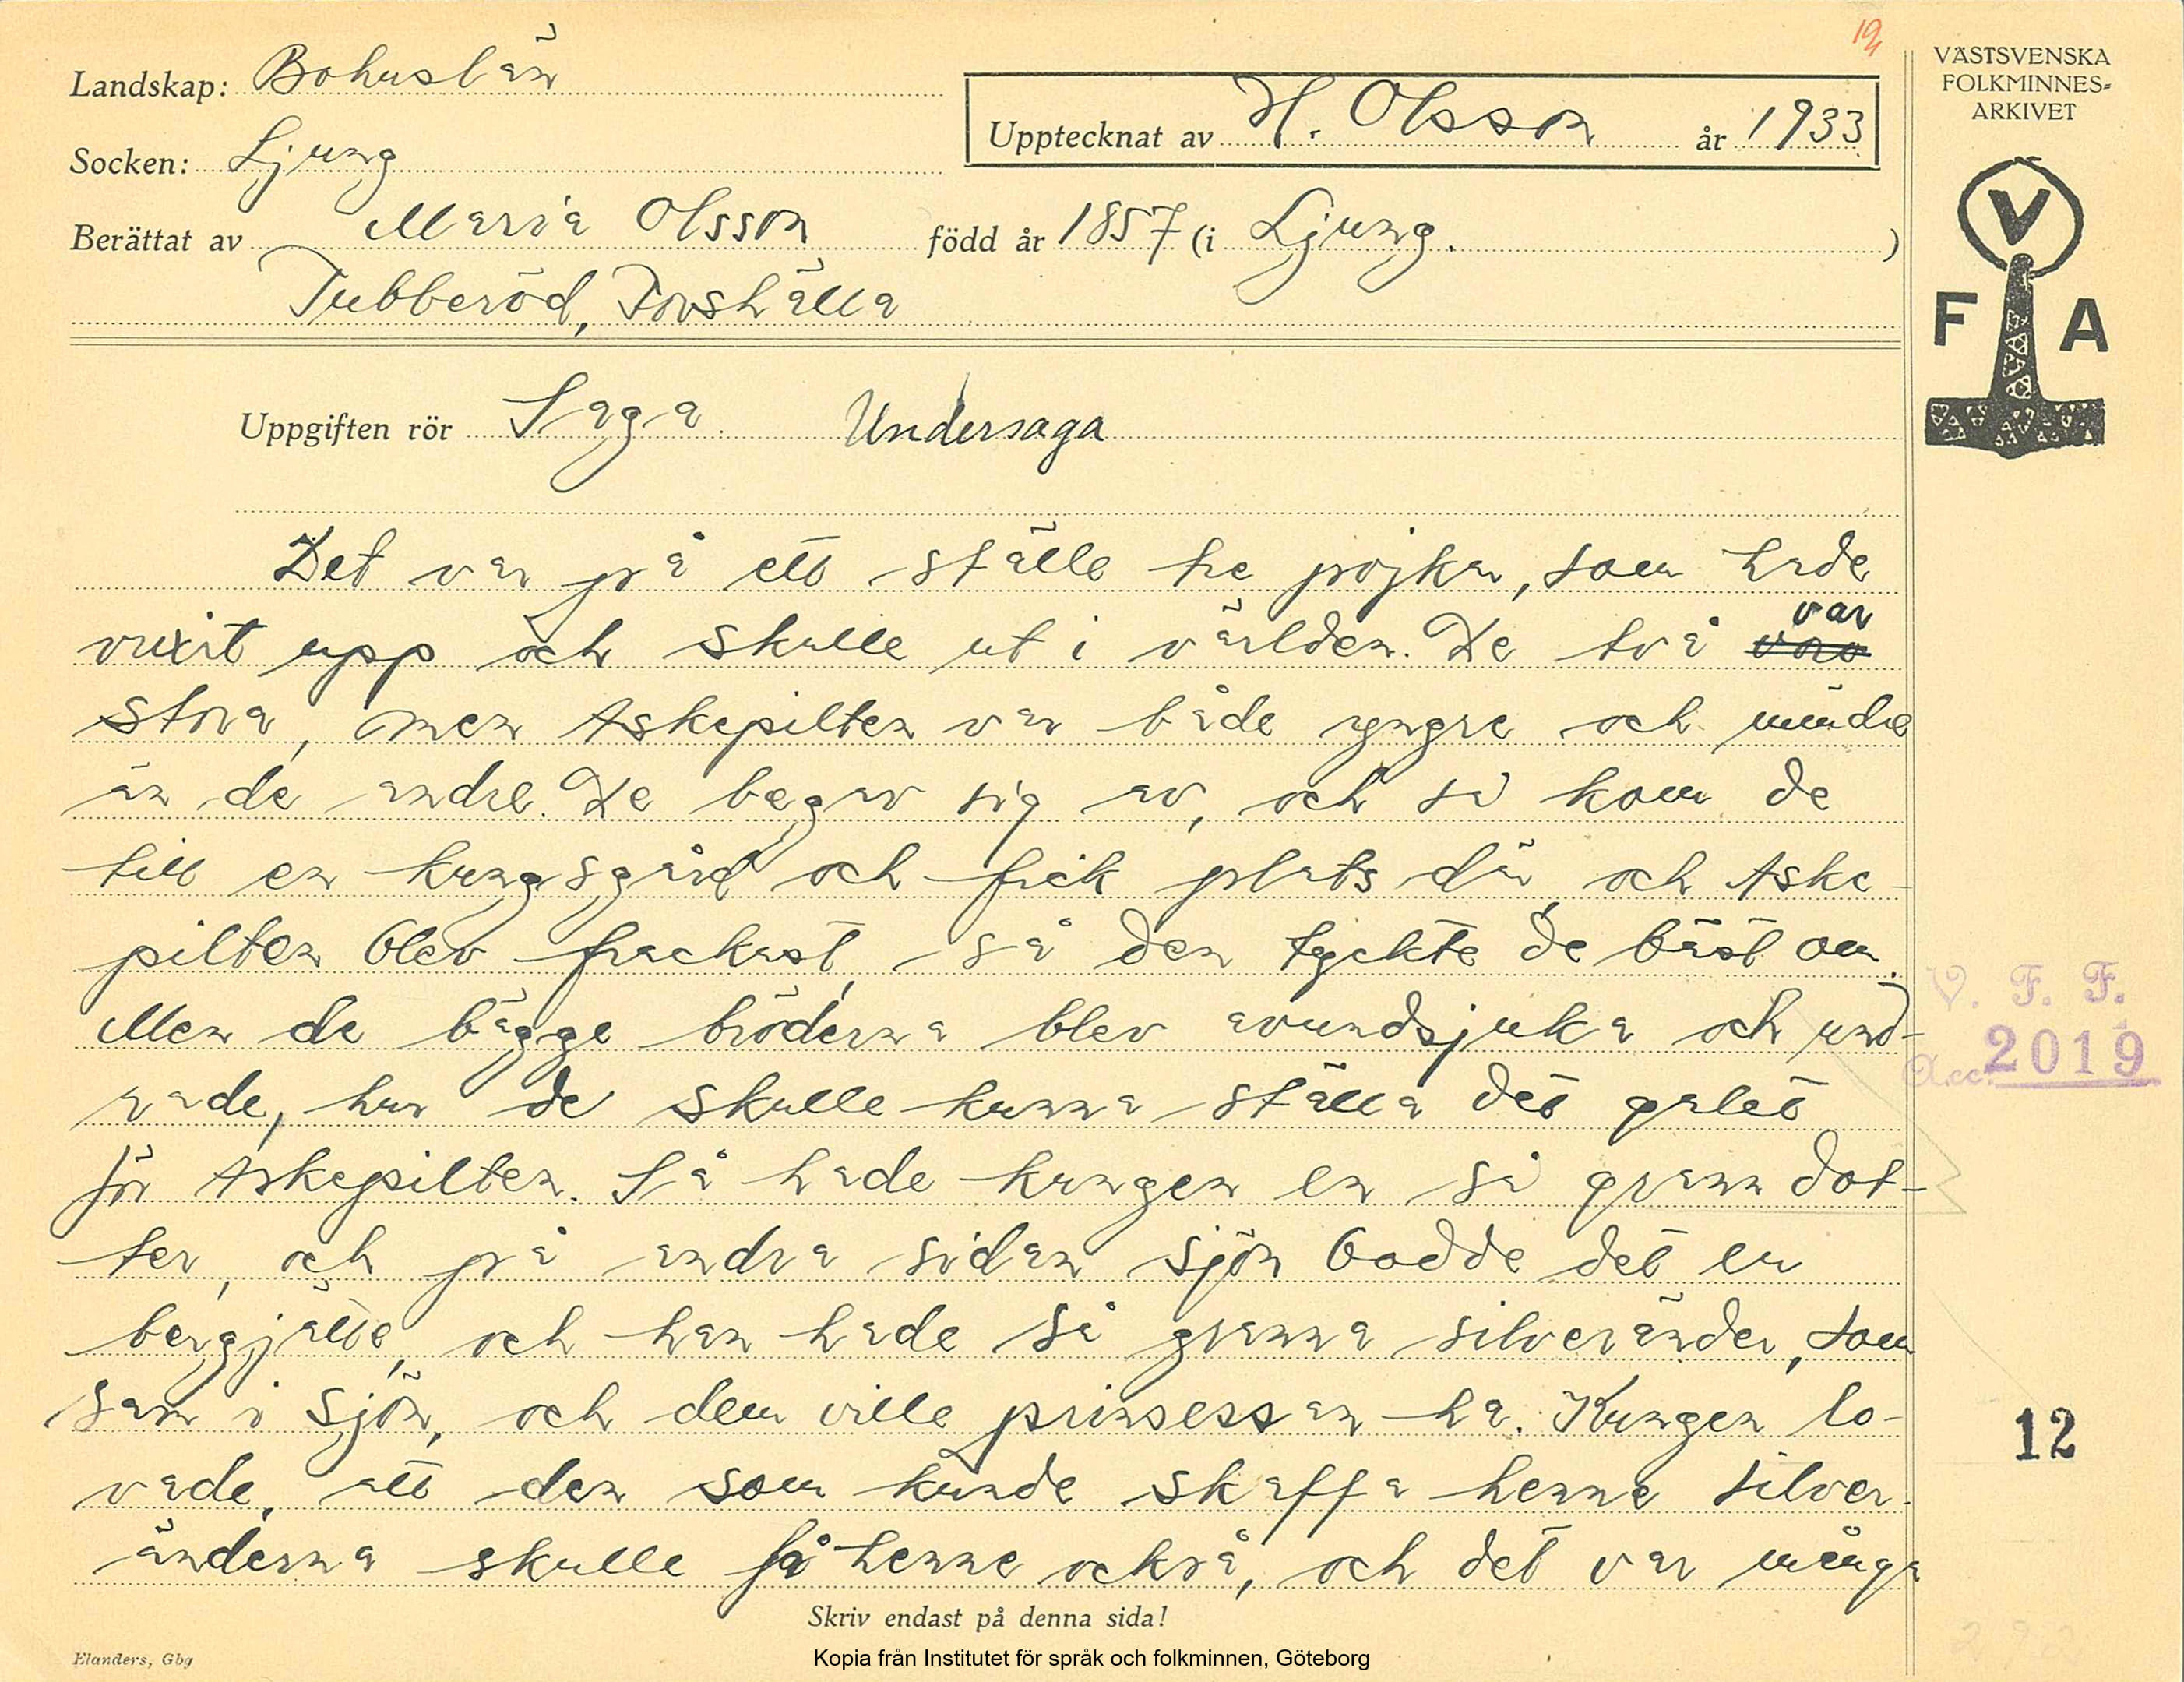 19
Landskap: Bohuslän
Socken: Ljung
Upptecknat av H. Olsson år 1933
Berättat av Maria Olsson född år 1857 (i Ljung. )
Tubberöd, Forshälla
VÄSTSVENSKA
FOLKMINNES-
ARKIVET
V
F A
Uppgiften rör Saga. Undersaga
Det var på ett ställe tre pojkar, som hade
vuxit upp och skulle ut i världen. De två voro var
stora, men Askepilten var både yngre och mindre
än de andre. De begav sig av, och så kom de
till en kungsgård och fick plats där, och Aske-
pilten blev frackast, så den tyckte de bäst om.
Men de bägge bröderna blev avundsjuka och und-
rade, hur de skulle kunna ställa det galet
för Askepilten. Så hade kungen en så grann dot-
ter, och på andra sidan sjön bodde det en
bergjätte, och han hade så granna silveränder, som
sam i sjön, och dem ville prinsessan ha. Kungen lo-
vade, att den som kunde skaffa henne silver-
änderna skulle få henne också, och det var många
V. F. F.
Acc. 2019
12
Skriv endast på denna sida!
Elanders, Gbg
Kopia från Institutet för språk och folkminnen, Göteborg